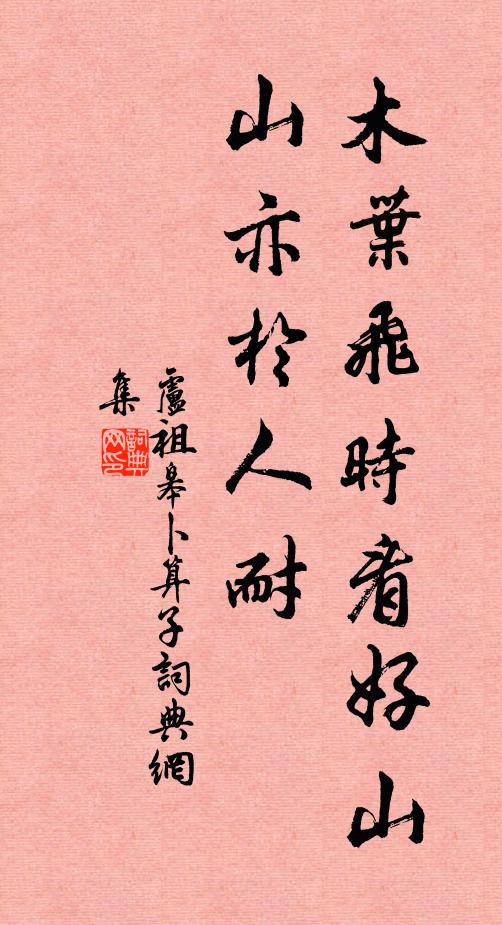 木葉飛時看好山
山亦於人耐
盧祖皋卜算子詞典網
集
詞典
网印